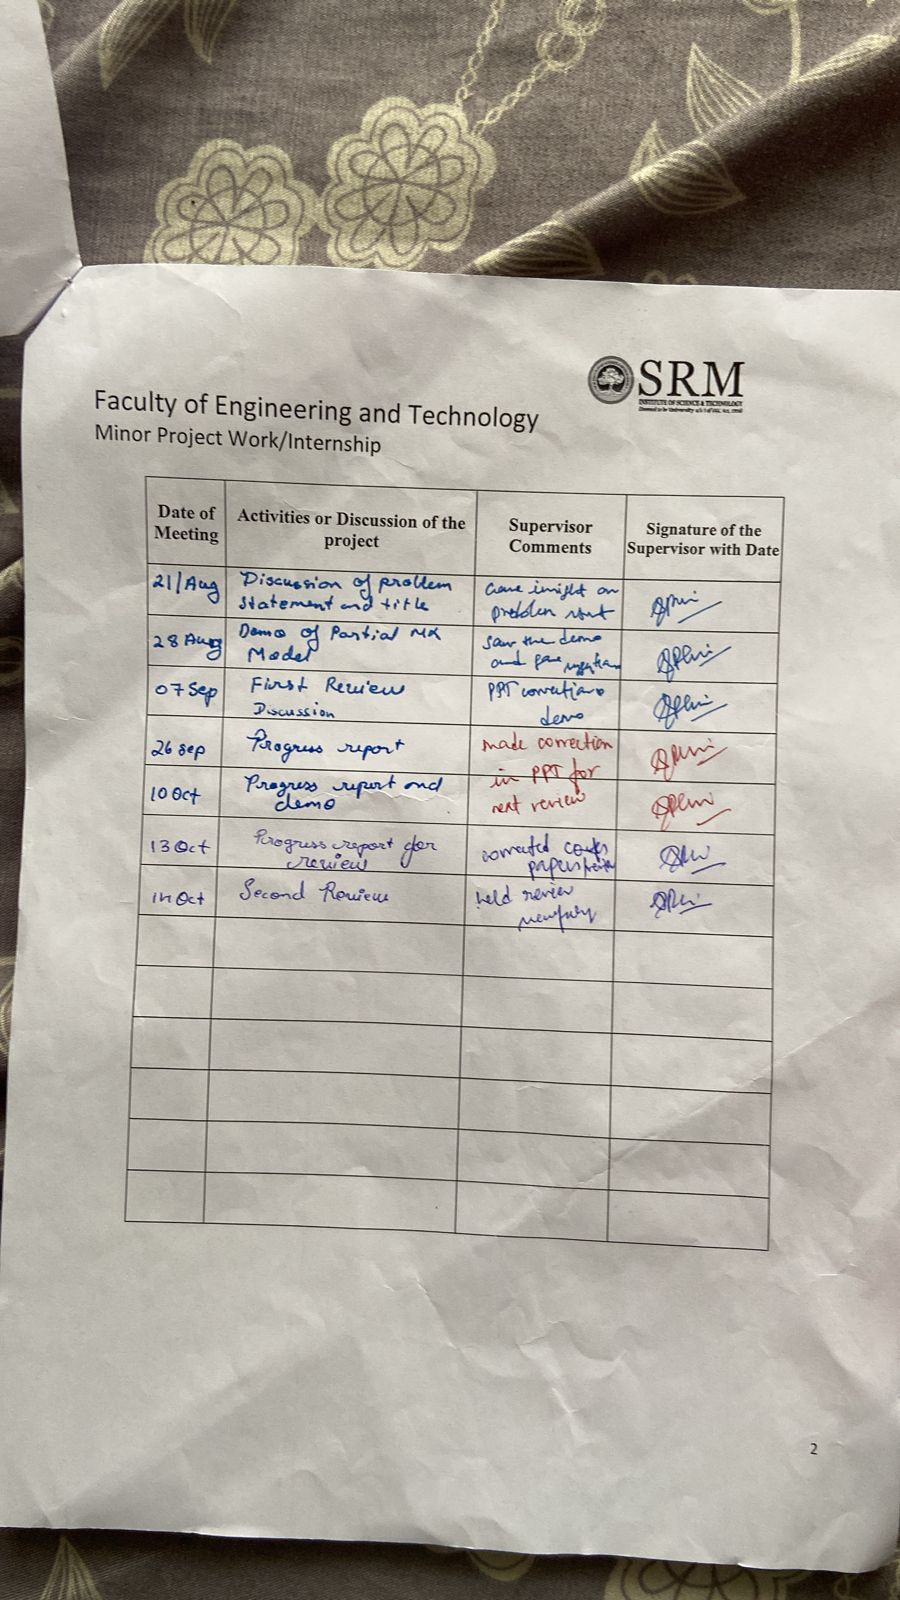 SRM
INSTITUTE OF SCIENCE & TECHNOLOGY
Deemed to be University u/s 3 of UGC Act, 1956
Faculty of Engineering and Technology
Minor Project Work/Internship
Date of Meeting
Activities or Discussion of the project
Supervisor Comments
Signature of the Supervisor with Date
21/Aug
Discussion of problem
statement and title
Gave insight on
problem
28 Aug
Demo of Partial
Model
Saw the demo
and gave
07 Sep
First Review
Discussion
PPT
demo
26 sep
Progress report
made correction
in PPT for
next review
10 Oct
Progress report and
demo
13 Oct
Progress report for
review
14 Oct
Second Review
held review
2